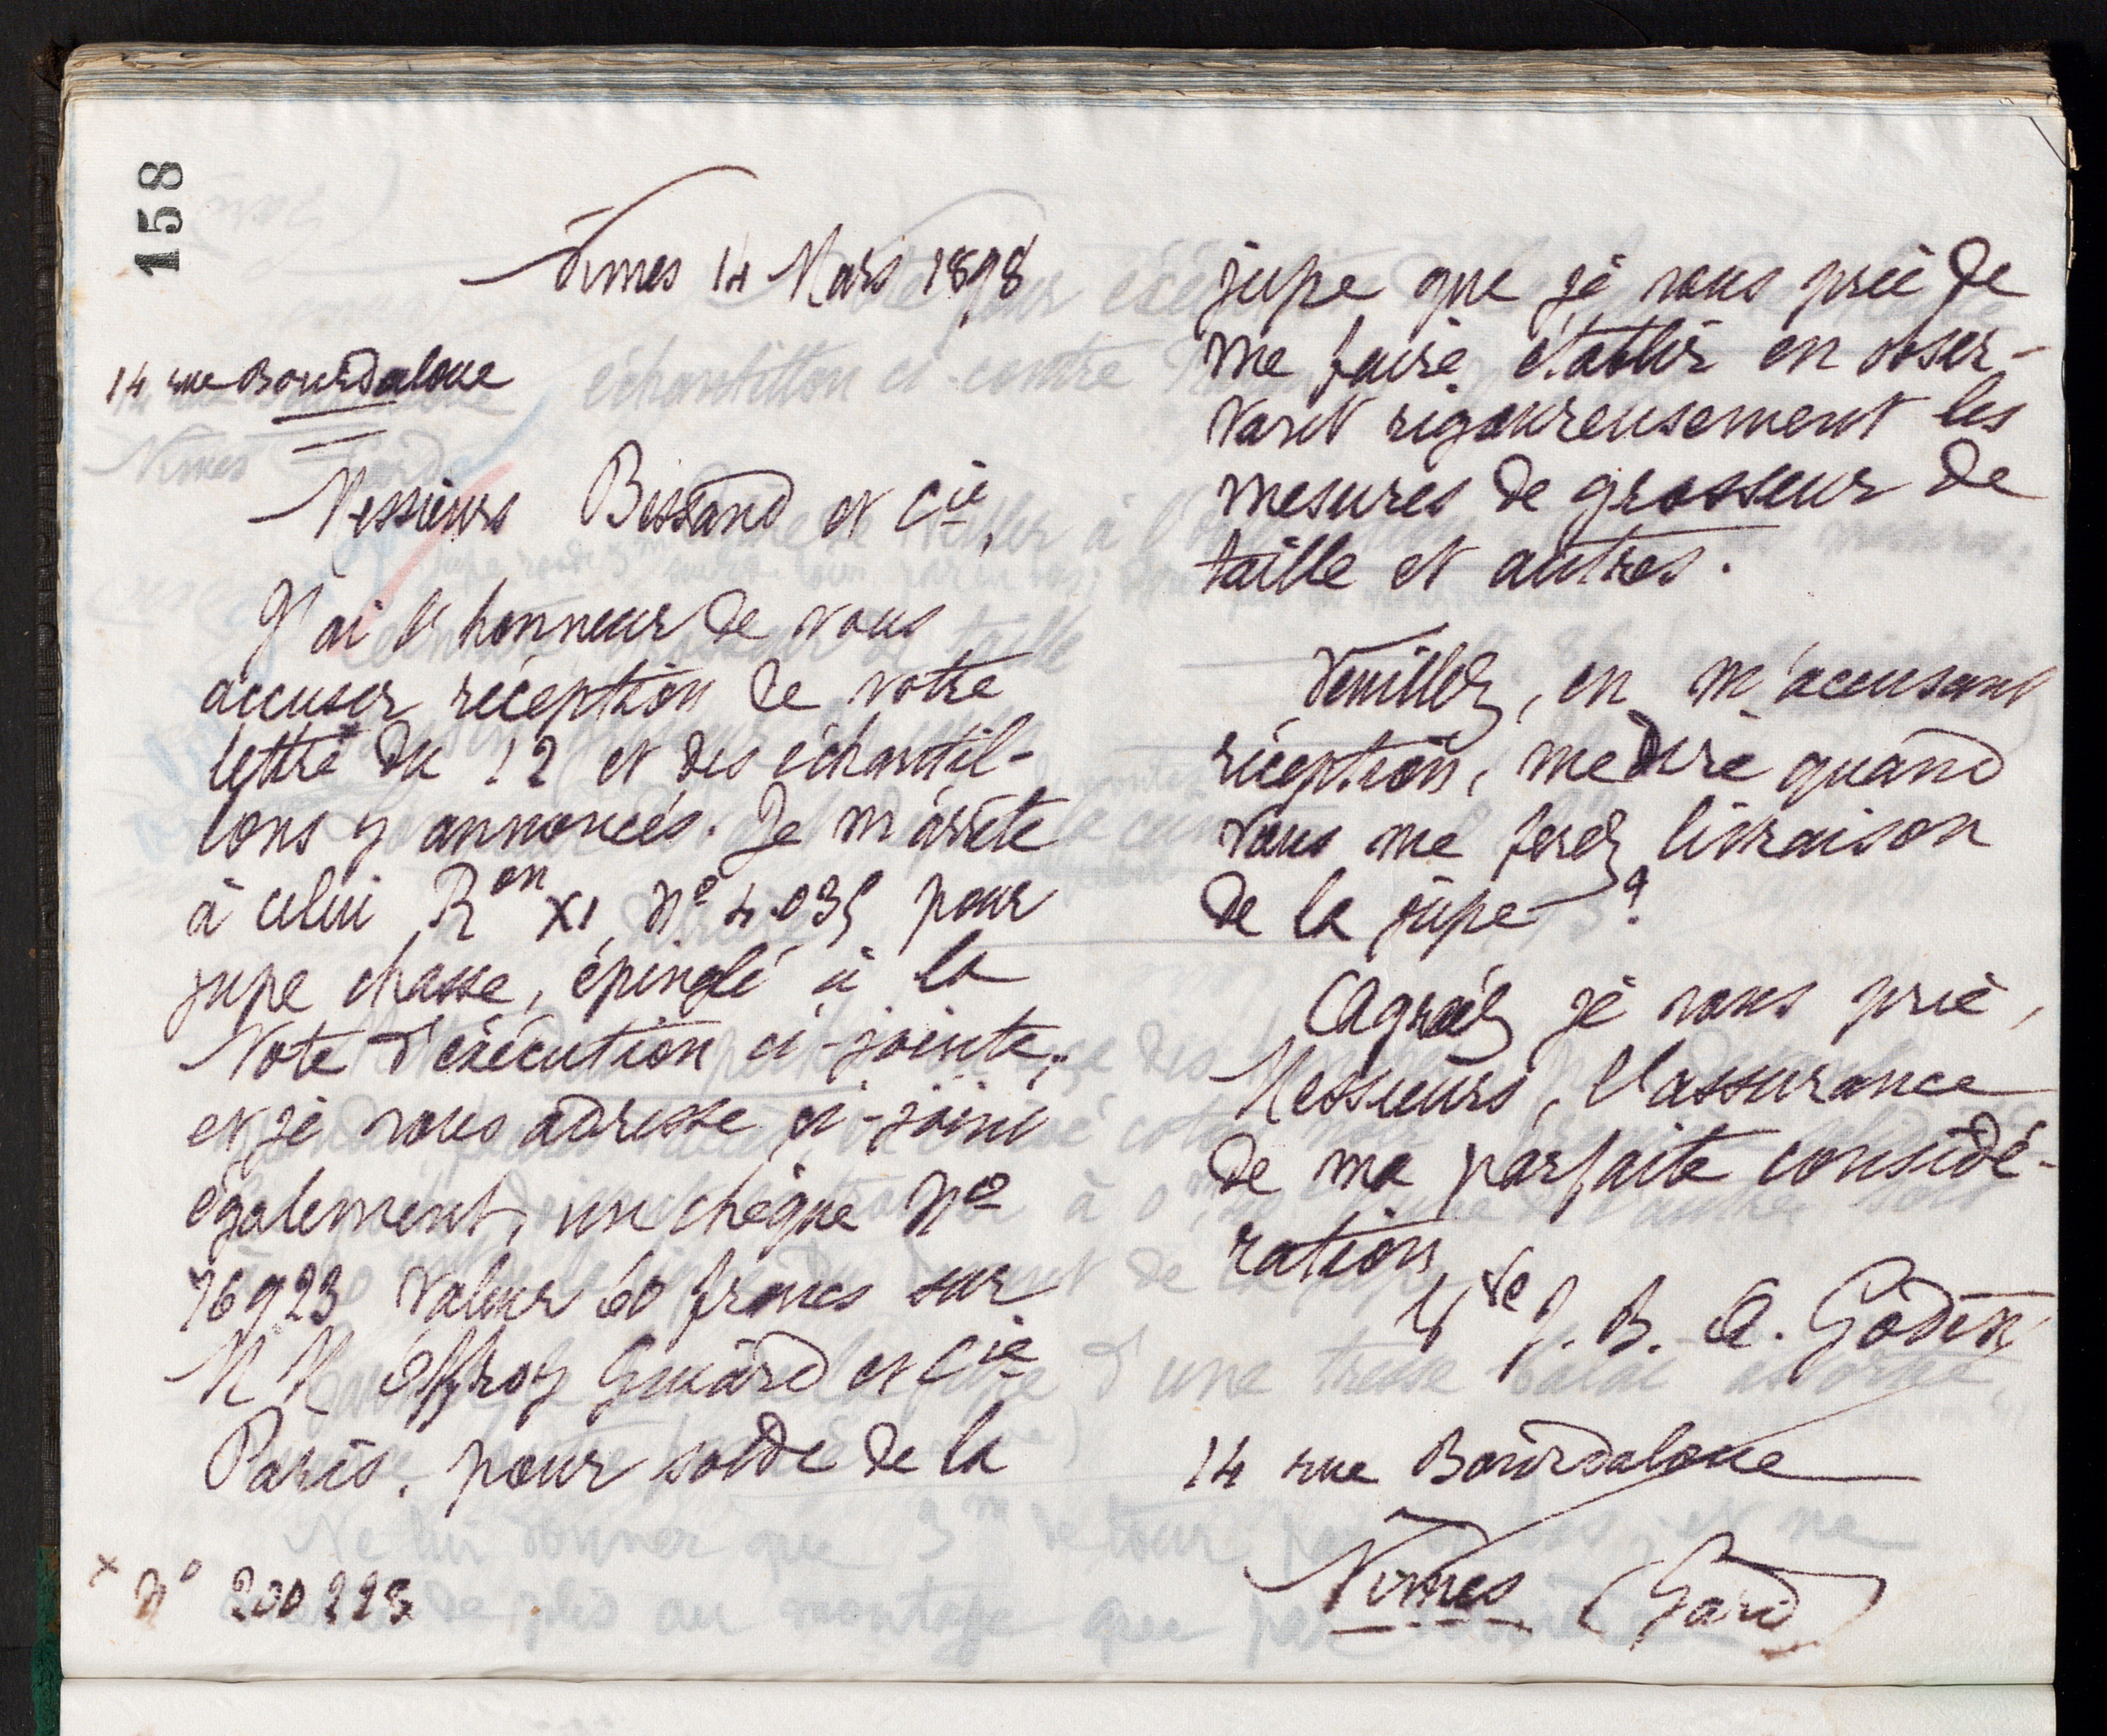 158
Nîmes 14 Mars 1898
14 rue Bourdaloue
Messieurs Bessand et Cie,
J'ai l'honneur de vous
accuser réception de votre
lettre du 12 et des échantil-
lons y annoncés. Je m'arrête
à celui Ron XI Nº 4.035 pour
jupe chasse, épinglé à la
Note d'exécution ci-jointe,
et je vous adresse ci-joint
également, un chèque Nº
76923 valeur 60 francs sur
MM Offroy Guiard et Cie
Paris, pour solde de la
x Nº 200 225
jupe que je vous prie de
me faire établir en obser-
vant rigoureusement les
mesures de grosseur de
taille et autres.
Veuillez, en m'accusant
réception, me dire quand
vous me ferez livraison
de la jupe ?
Agréez je vous prie,
Messieurs, l'assurance
de ma parfaite considé-
ration
Vve J. B. A. Godin
14 rue Bourdaloue
Nîmes (Gard)